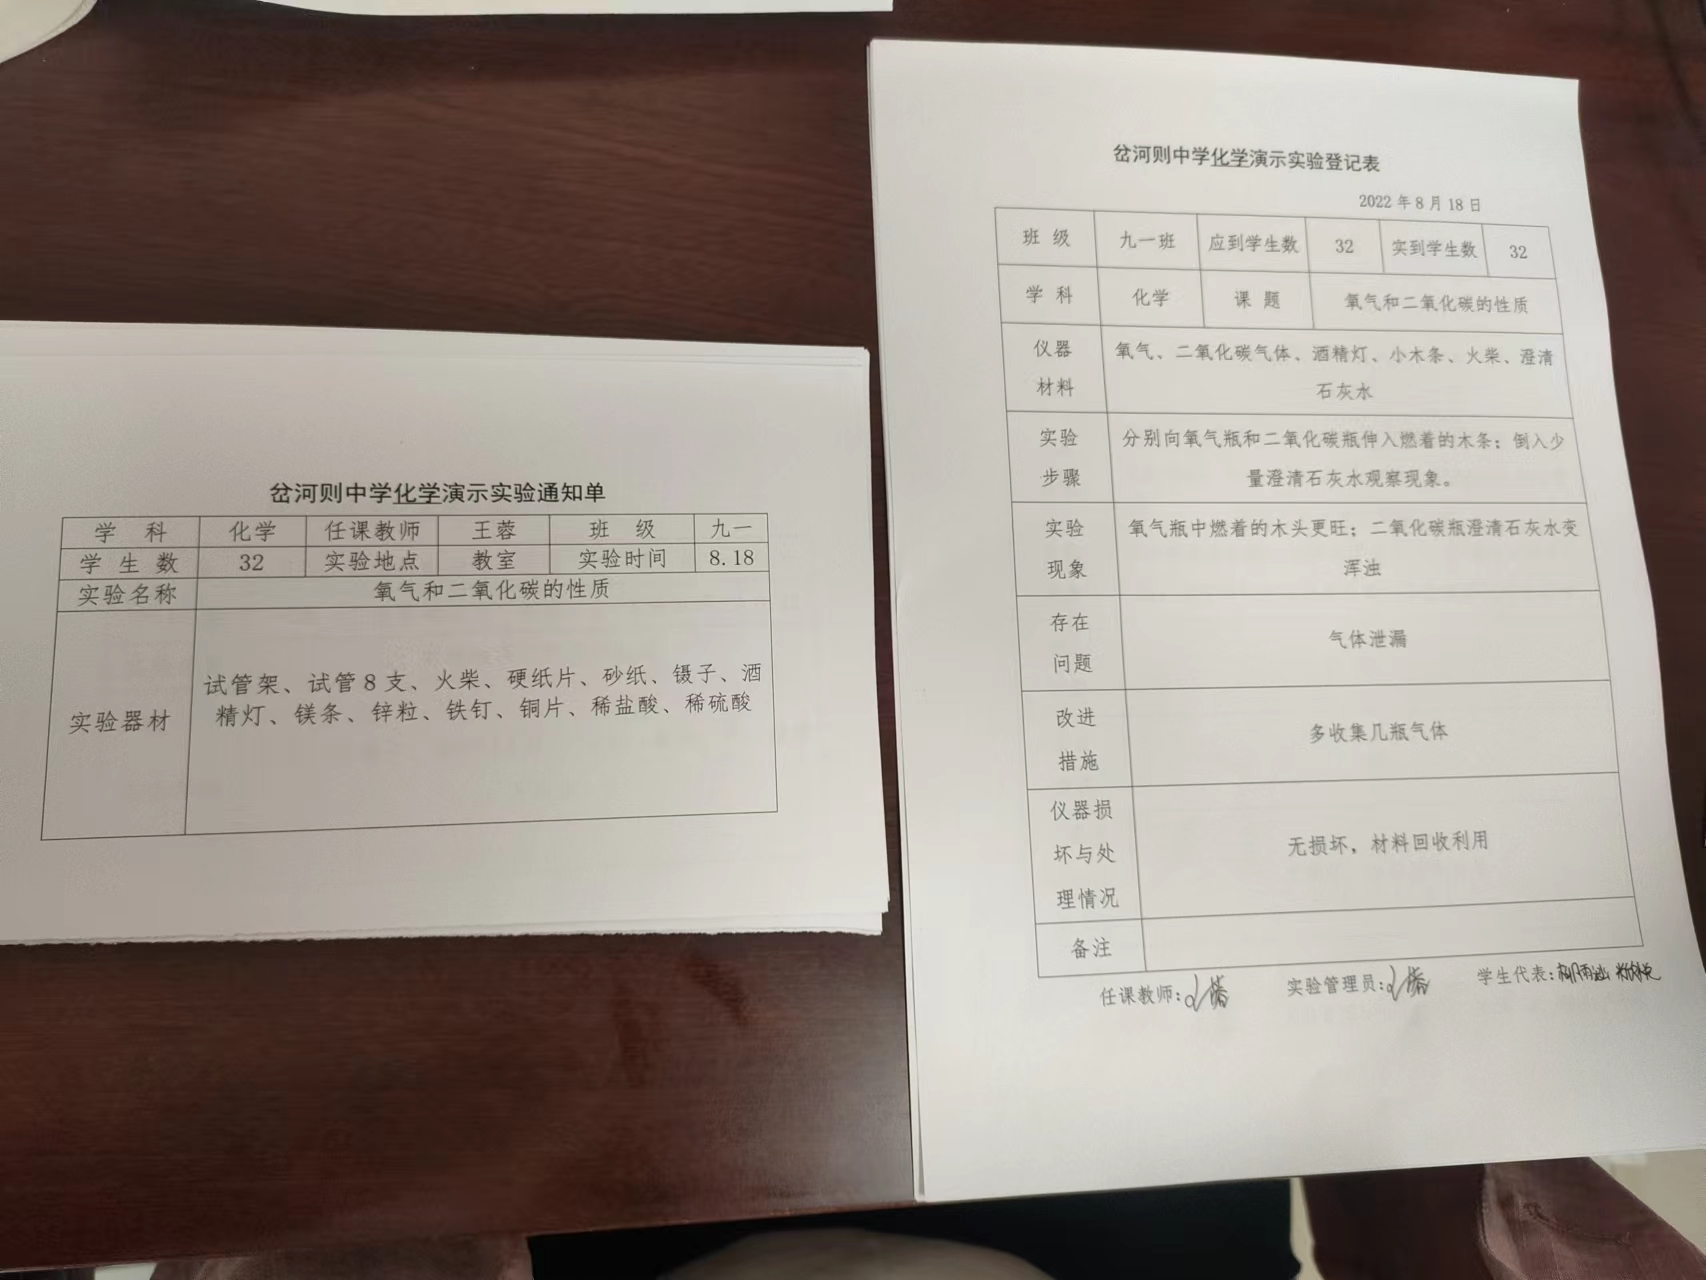 岔河则中学化学演示实验通知单
学 科 化学 任课教师 王蓉 班 级 九一
学 生 数 32 实验地点 教室 实验时间 8.18
实验名称 氧气和二氧化碳的性质
实验器材
试管架、试管8支、火柴、硬纸片、砂纸、镊子、酒
精灯、镁条、锌粒、铁钉、铜片、稀盐酸、稀硫酸
岔河则中学化学演示实验登记表
2022年8月18日
班 级 九一班 应到学生数 32 实到学生数 32
学 科 化学 课 题 氧气和二氧化碳的性质
仪器
材料
氧气、二氧化碳气体、酒精灯、小木条、火柴、澄清
石灰水
实验
步骤
分别向氧气瓶和二氧化碳瓶伸入燃着的木条；倒入少
量澄清石灰水观察现象。
实验
现象
氧气瓶中燃着的木头更旺；二氧化碳瓶澄清石灰水变
浑浊
存在
问题
气体泄漏
改进
措施
多收集几瓶气体
仪器损
坏与处
理情况
无损坏，材料回收利用
备注
任课教师： 实验管理员： 学生代表：